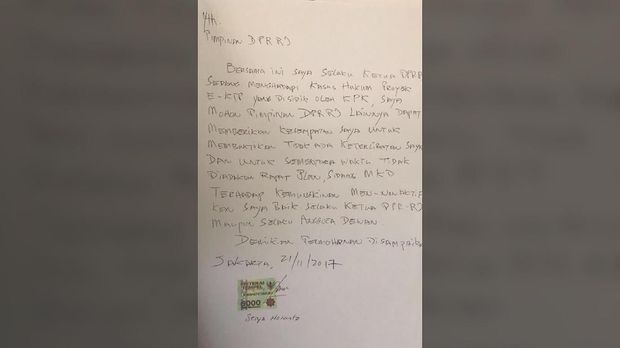 Yth.
Pimpinan DPR RI
Bersama ini saya selaku Ketua DPR RI
sedang menghadapi kasus hukum proyek
E-KTP yang disidik oleh KPK, saya
mohon Pimpinan DPR RI lainnya dapat
memberikan kesempatan saya untuk
membuktikan tidak ada keterlibatan saya
dan untuk sementara waktu tidak
diadakan rapat pleno, sidang MKD
terhadap kemungkinan men-nonaktif
kan saya baik selaku Ketua DPR-RI
maupun selaku anggota dewan.
Demikian permohonan disampaikan
Jakarta, 21/11/2017
METERAI
TEMPEL
6000
Setya Novanto